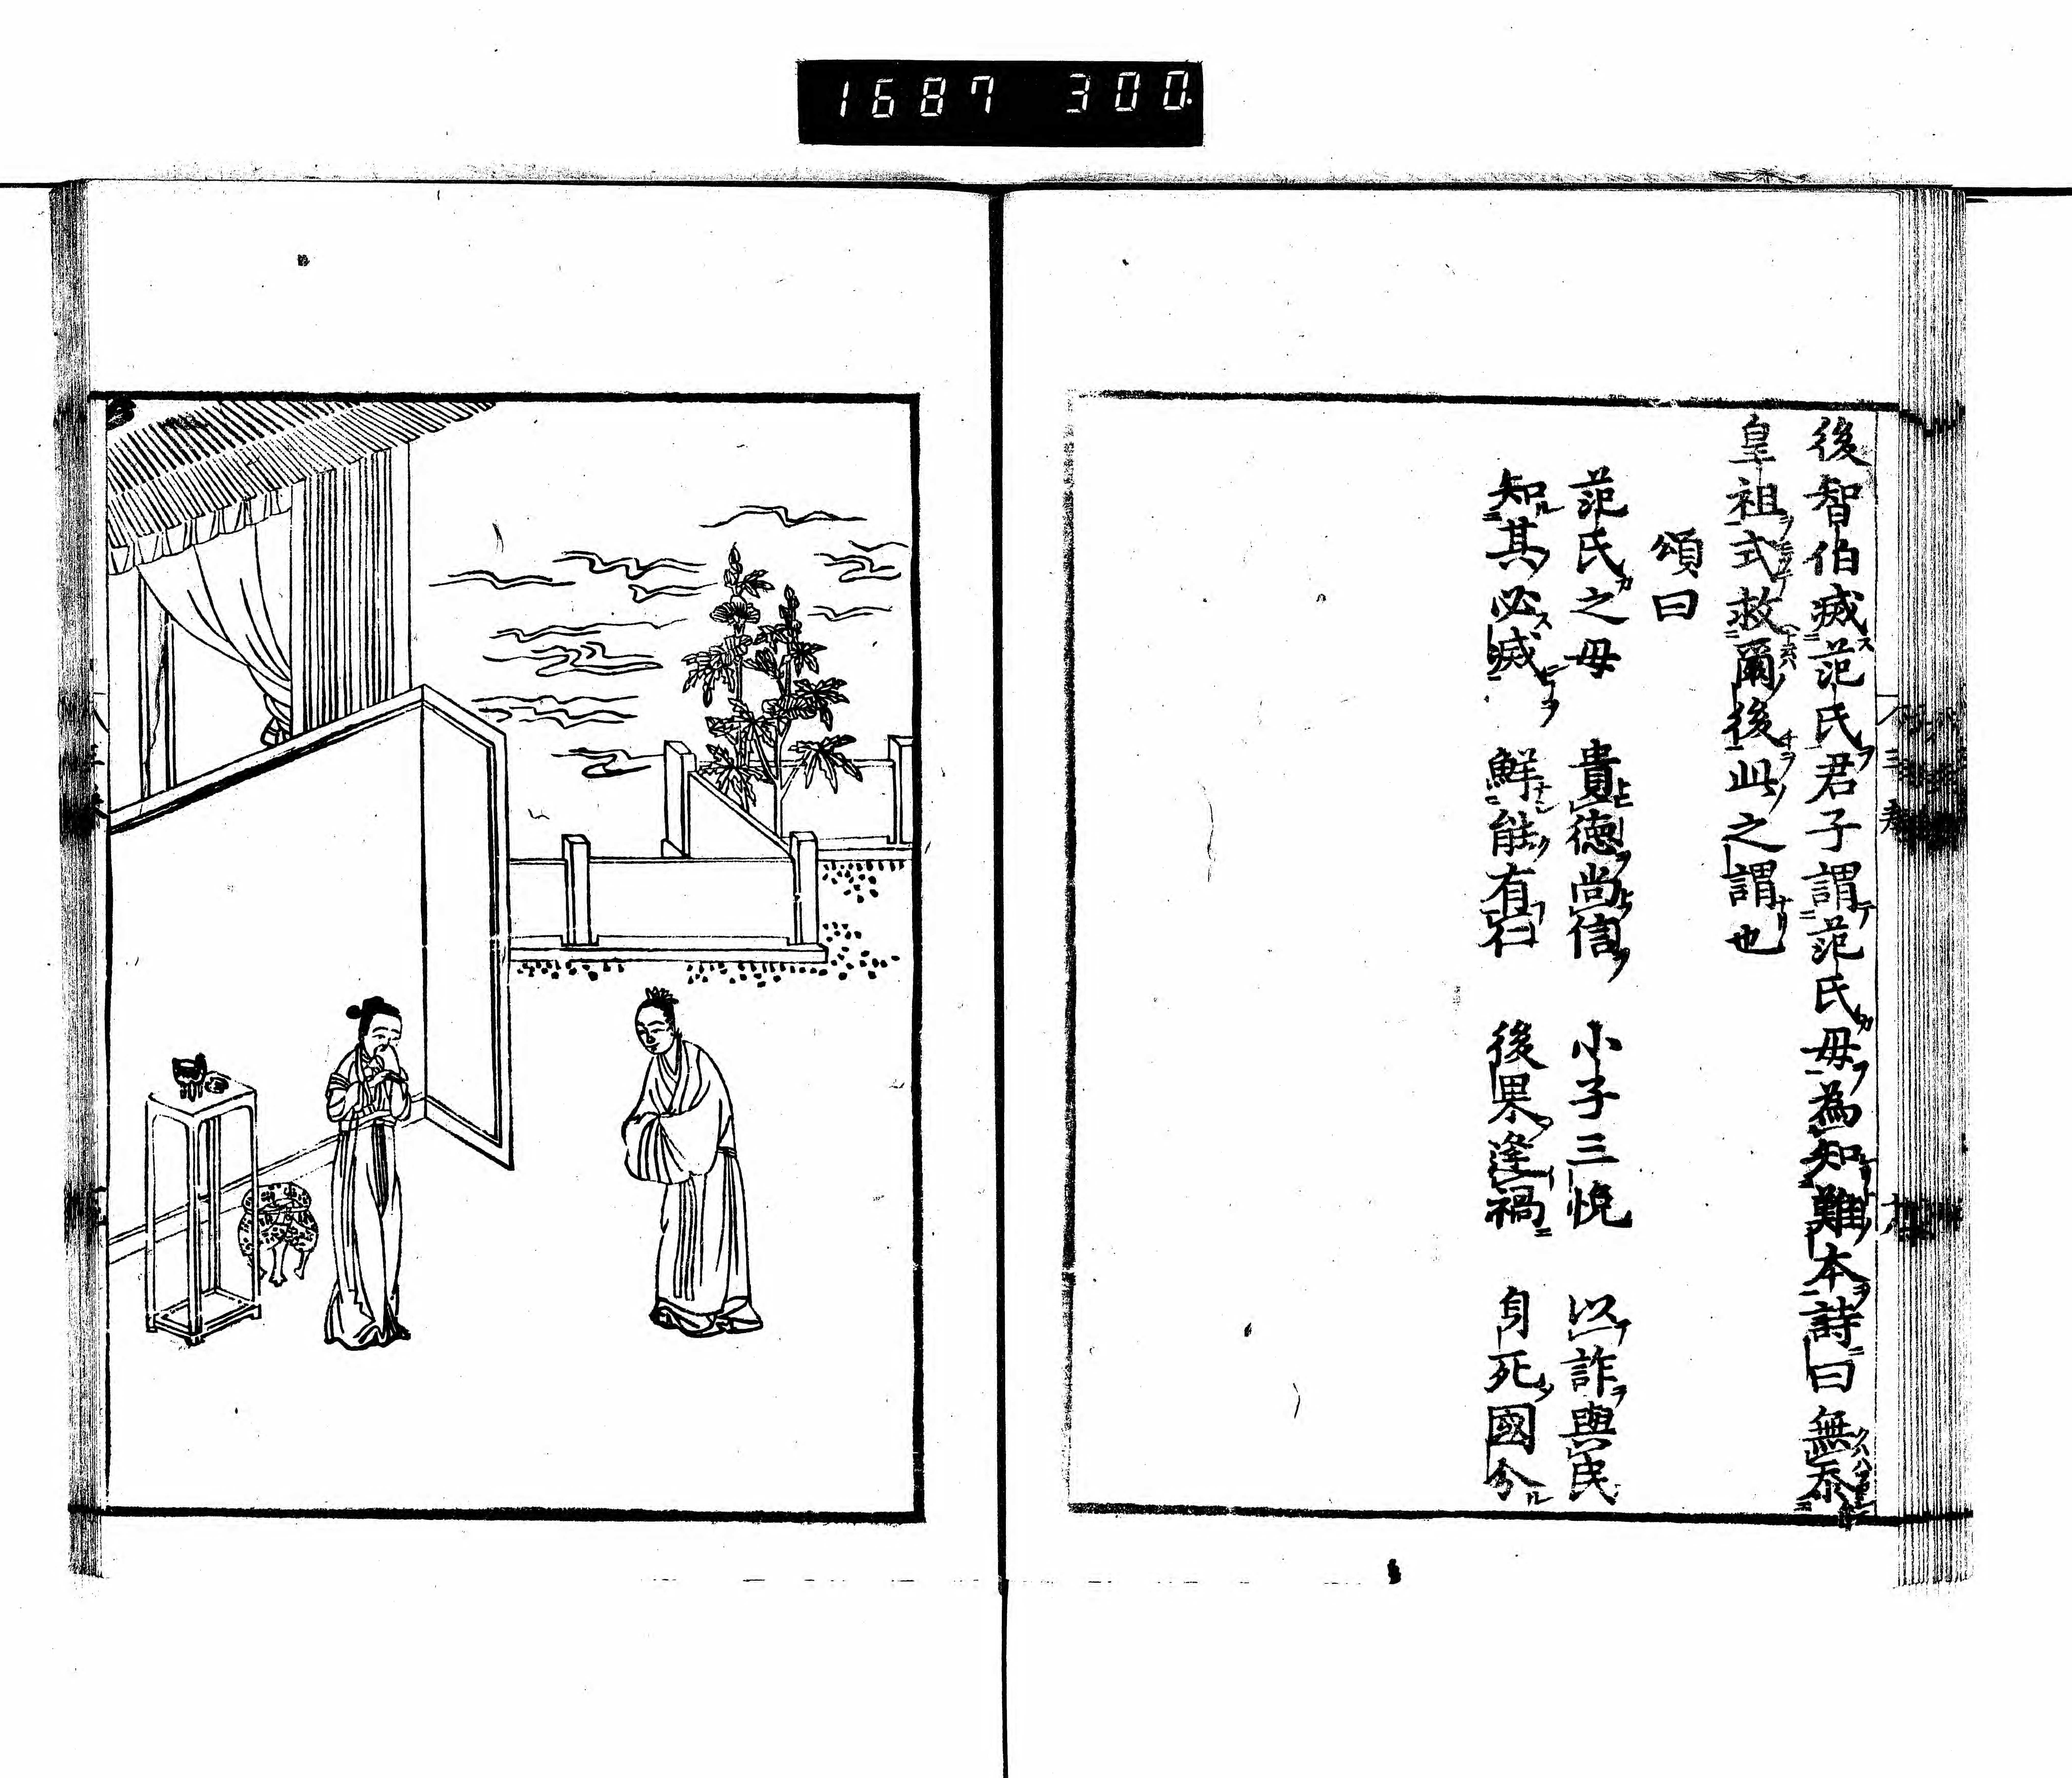 1687 300.
後智伯滅范氏君子謂范氏母為知難本詩曰無忝
皇祖式救爾後此之謂也
頌曰
范氏之母 貴德尚信 小子三悅 以詐與民
知其必滅 鮮能有仁 後果逢禍 身死國分